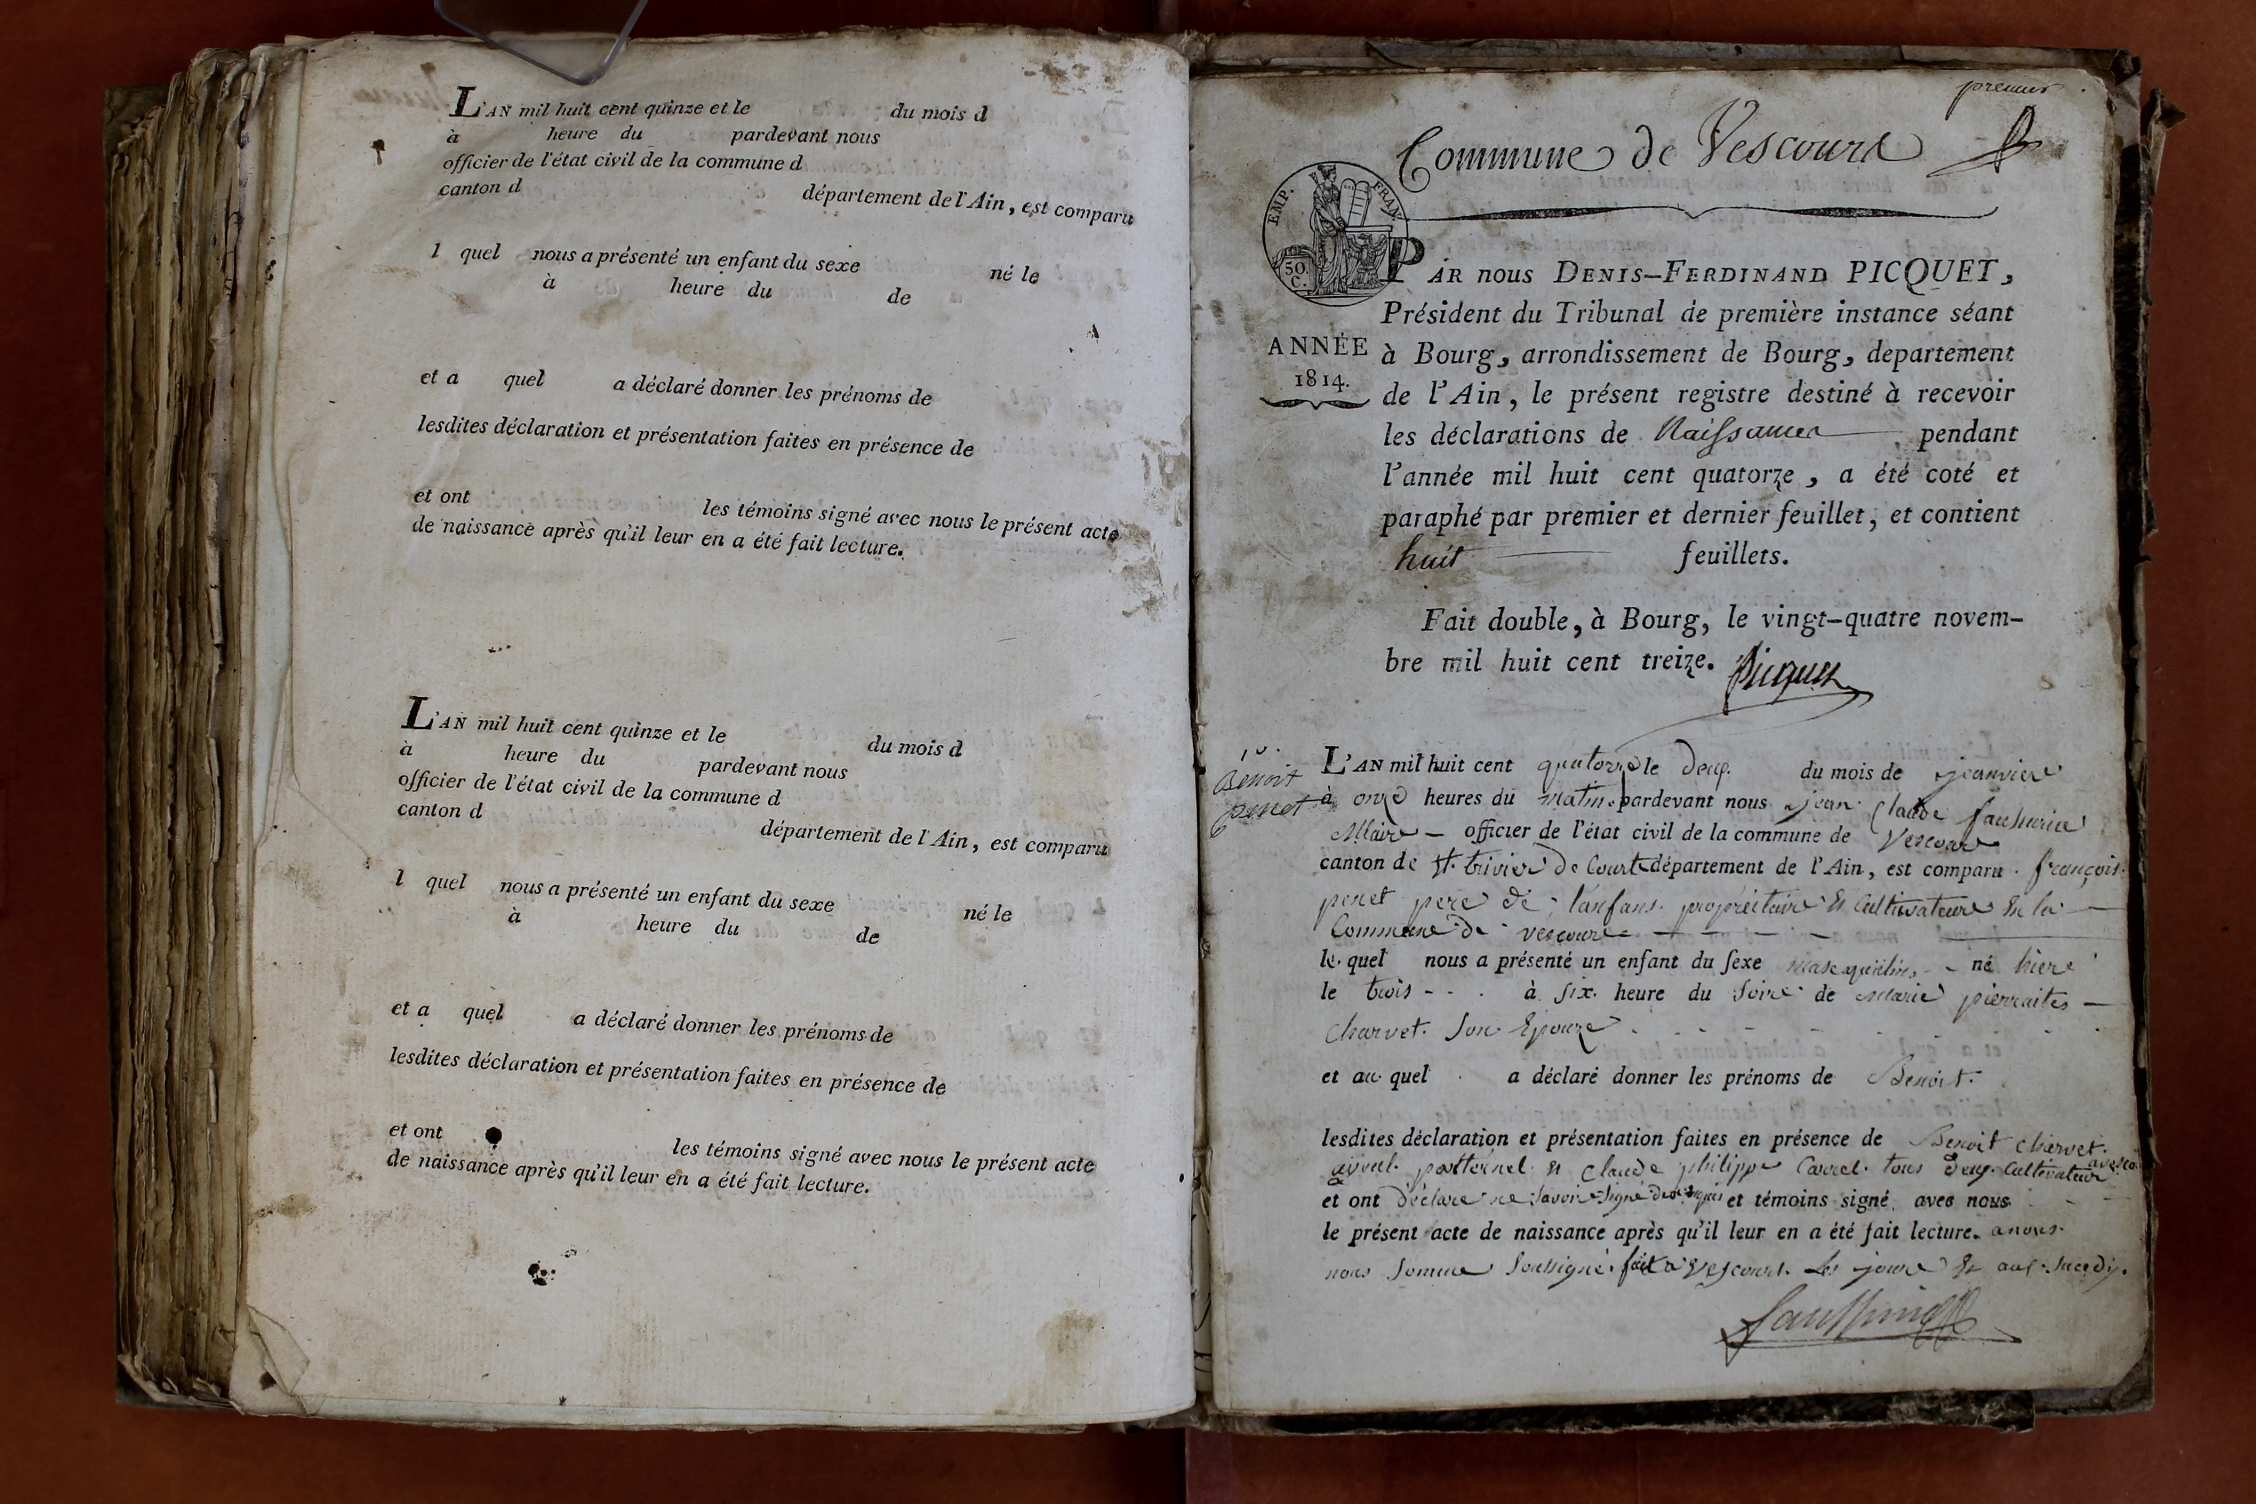 L'AN mil huit cent quinze et le du mois d
à heure du pardevant nous
officier de l'état civil de la commune d
canton d département de l'Ain, est comparu
l quel nous a présenté un enfant du sexe né le
à heure du de
et a quel a déclaré donner les prénoms de
lesdites déclaration et présentation faites en présence de
et ont les témoins signé avec nous le présent acte
de naissance après qu'il leur en a été fait lecture.
L'AN mil huit cent quinze et le du mois d
à heure du pardevant nous
officier de l'état civil de la commune d
canton d département de l'Ain, est comparu
l quel nous a présenté un enfant du sexe né le
à heure du de
et a quel a déclaré donner les prénoms de
lesdites déclaration et présentation faites en présence de
et ont les témoins signé avec nous le présent acte
de naissance après qu'il leur en a été fait lecture.
premier
Commune de Vescours
EMP. FRAN.
50.
C.
ANNÉE
1814.
PAR nous DENIS-FERDINAND PICQUET,
Président du Tribunal de première instance séant
à Bourg, arrondissement de Bourg, departement
de l'Ain, le présent registre destiné à recevoir
les déclarations de Naissances pendant
l'année mil huit cent quatorze, a été coté et
paraphé par premier et dernier feuillet, et contient
huit feuillets.
Fait double, à Bourg, le vingt-quatre novem-
bre mil huit cent treize. Picquet
Benoit
penet
L'AN mil huit cent quatorze le deux du mois de
à onze heures du matin pardevant nous jean Claude
Maire officier de l'état civil de la commune de Vescour
canton de St. trivier de Courte département de l'Ain, est comparu françois
penet pere de l'anfans propriétaire & Cultivateure En la
Commune de vescoure
le quel nous a présenté un enfant du sexe né hiere
le trois à six heure du soire de Marie pierraites
Charvet son Epouze
et au quel a déclaré donner les prénoms de Benoit.
lesdites déclaration et présentation faites en présence de Benoit Chervet
Claude philippe tous deux Cultivateur
et ont déclare ne savoir signé et témoins signé avec nous
le présent acte de naissance après qu'il leur en a été fait lecture. a nous
nous somme soussigné fait a Vescourt les joure & an